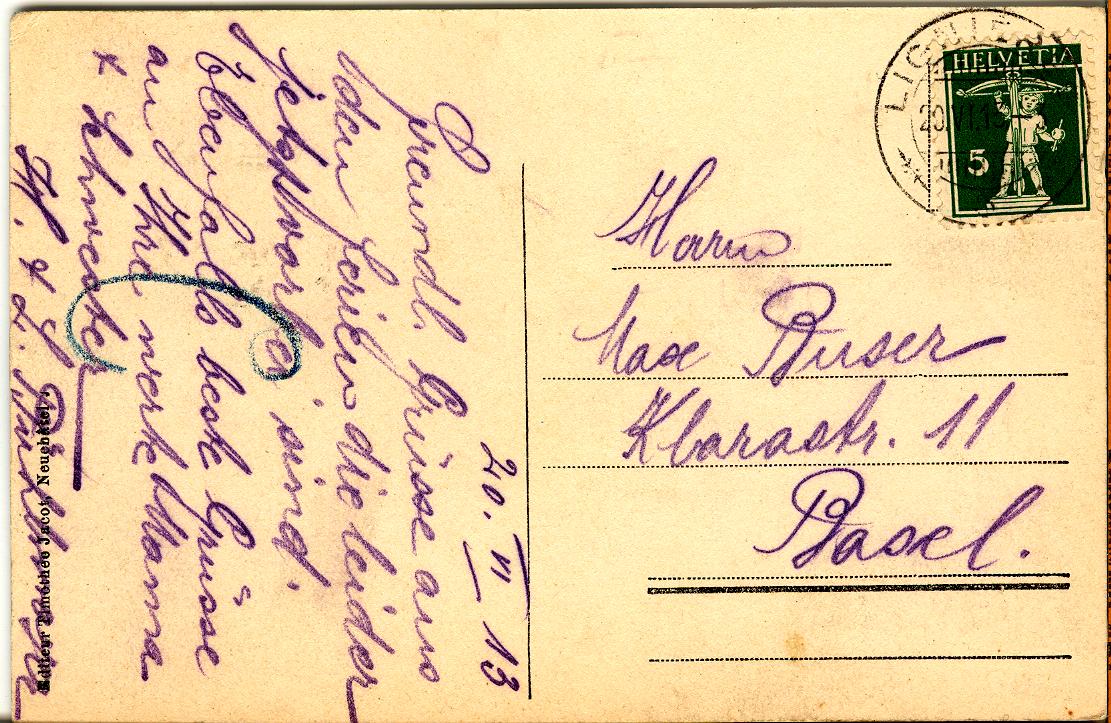 20. VI 13
Freundl. Grüsse aus
den Ferien die leider
jetzt vorbei sind.
Ebenfalls beste Grüsse
an Ihre werte Mama
& Schwester
H. & L.
Herrn
Max Buser
Klarastr. 11
Basel.
HELVETIA
5
20.VI.13
Editeur Timothée Jacot, Neuchâtel